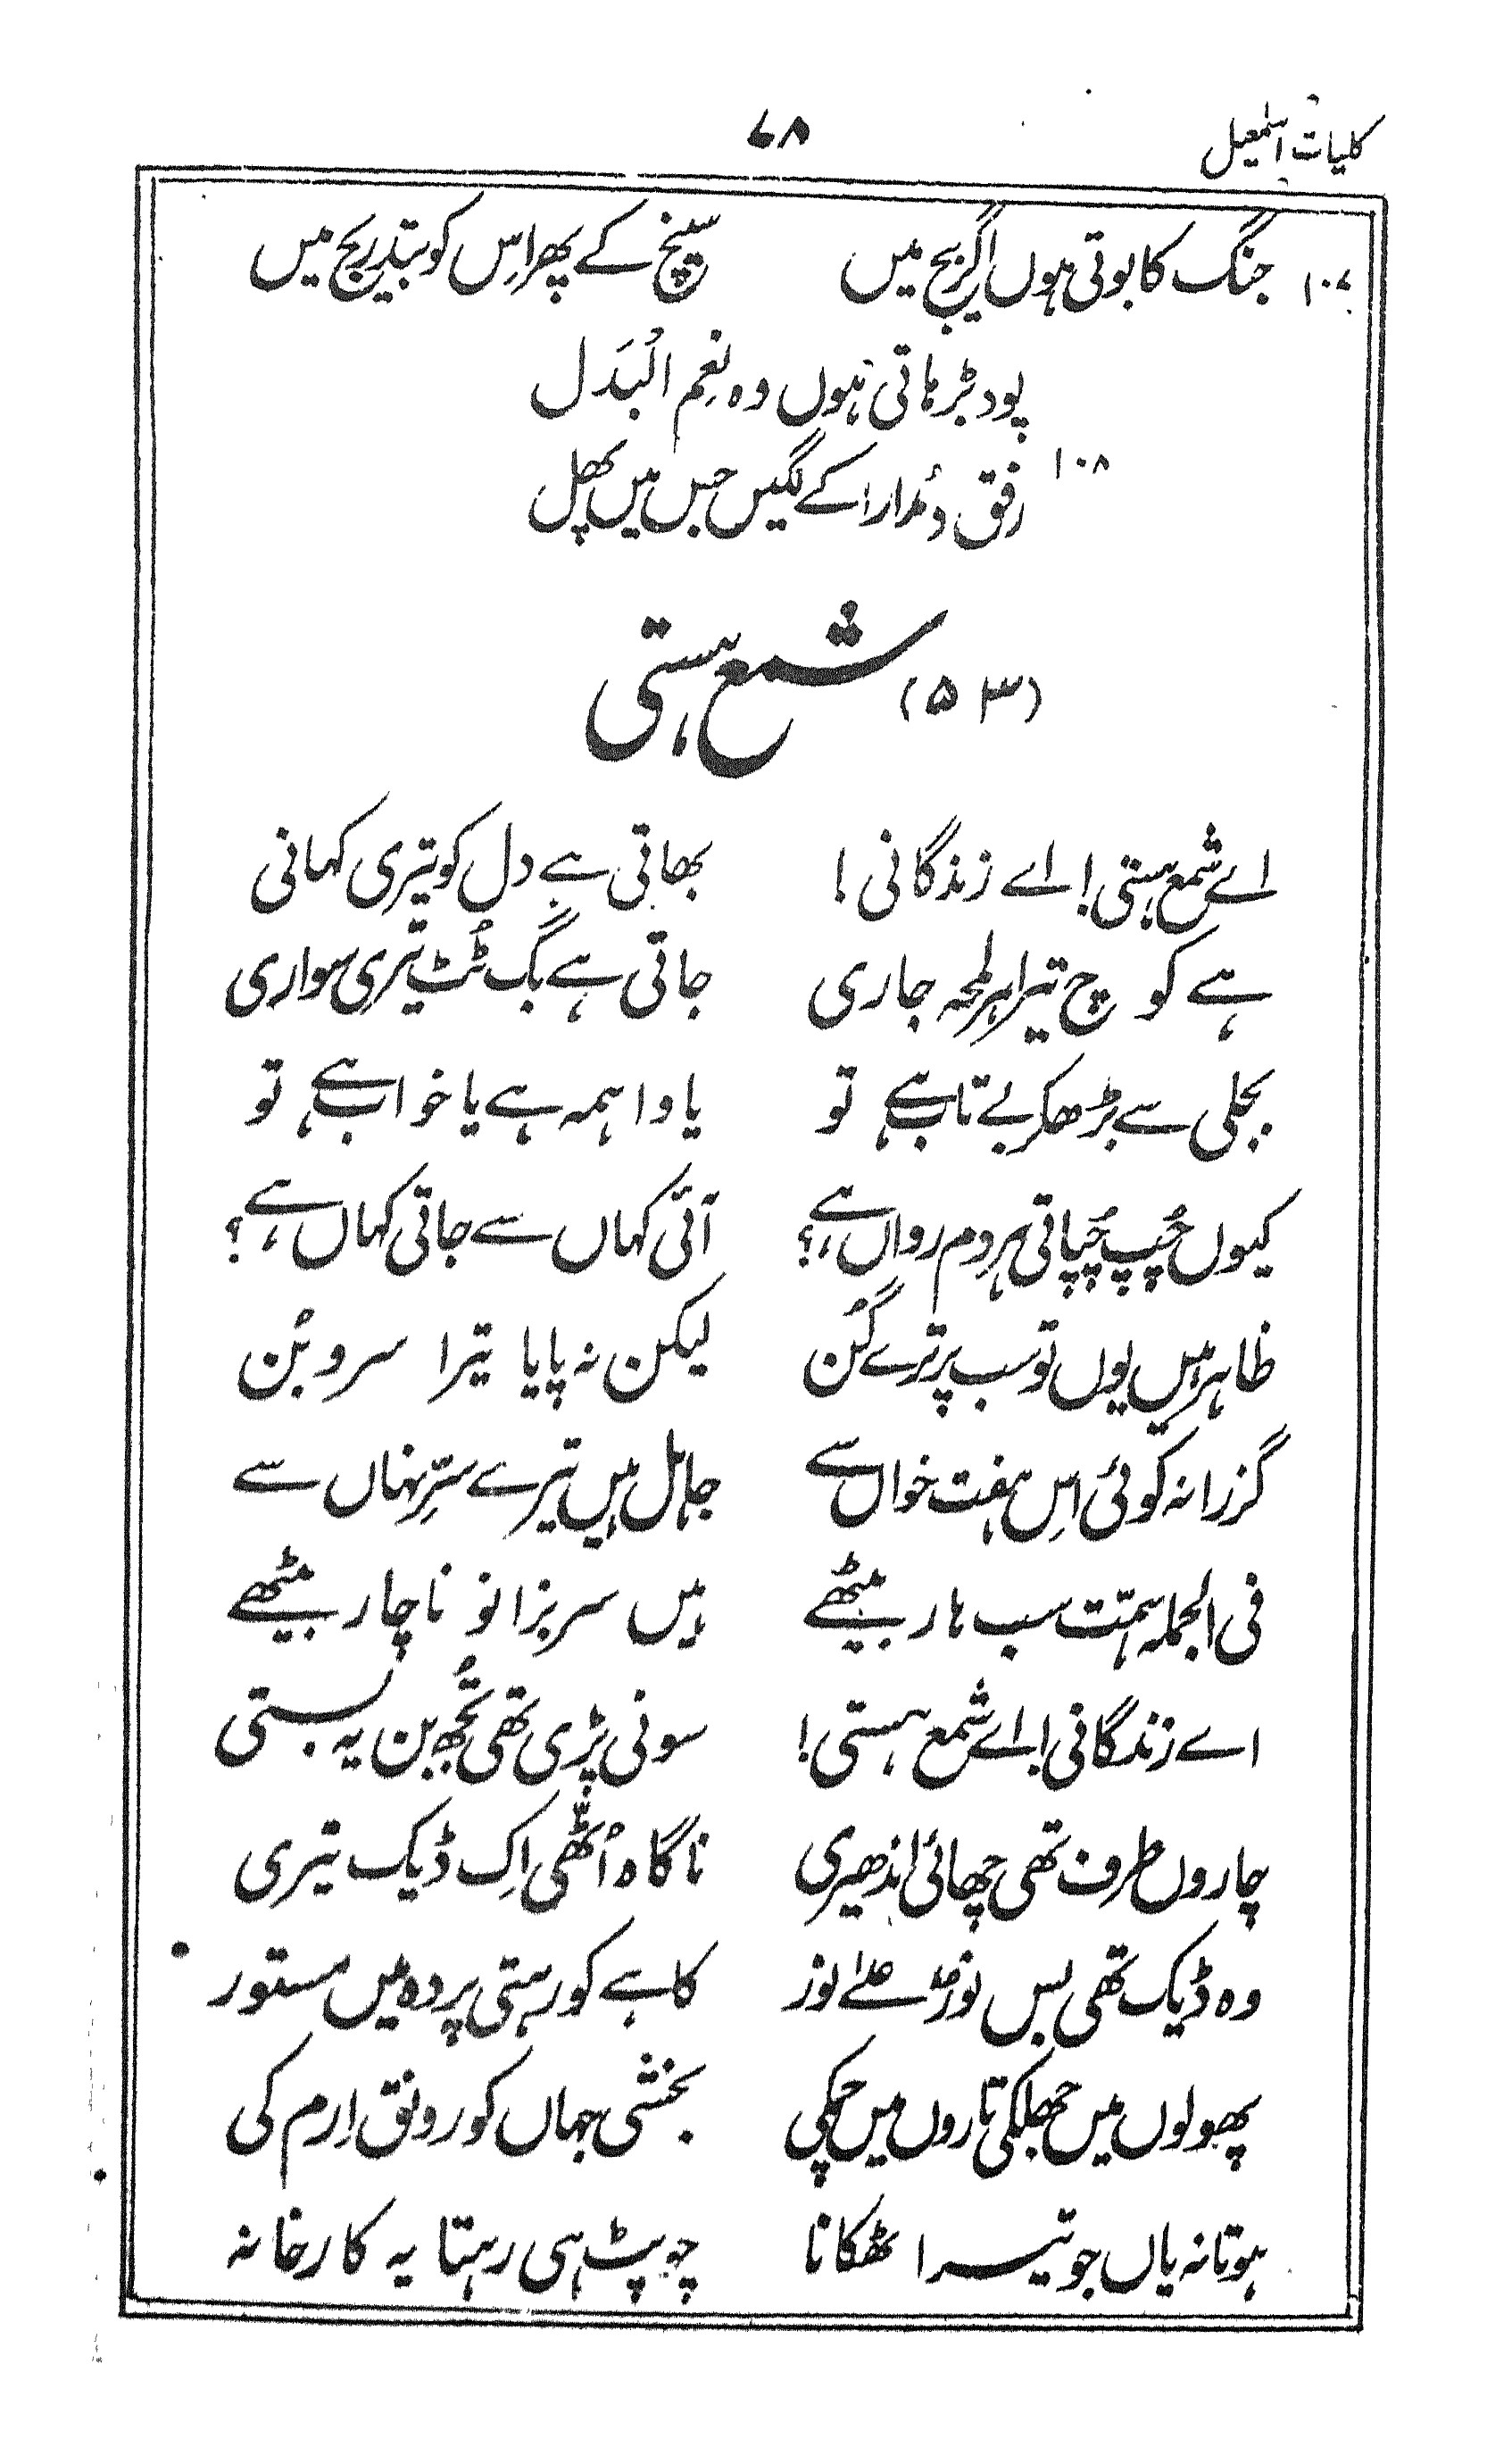 کلیات اسمٰعیل
۷۸
۱۰۷ جنگ کا بوتی ہوں اگر بیج میں سینچ کے پھر اِس کو بتدریج میں
پود بڑہاتی ہوں وہ نِعم البَدل
۱۰۸ رفق و مُدارا کے لگیں جس میں پھل
(۵۳) شمع ہستی
اے شمع ہستی! اے زندگانی! بھاتی ہے دل کو تیری کہانی
ہے کوچ تیرا ہر لمحہ جاری جاتی ہے بگ ٹُٹ تیری سواری
بجلی سے بڑھکر بے تاب ہے تو یا واہمہ ہے یا خواب ہے تو
کیوں چُپ چُپاتی ہر دم رواں ہے؟ آئی کہاں سے جاتی کہاں ہے؟
ظاہر ہیں یوں تو سب پر ترے گُن لیکن نہ پایا تیرا سر و بُن
گزرا نہ کوئی اِس ہفت خواں سے جاہل ہیں تیرے سِرِّ نہاں سے
فی الجملہ ہمّت سب ہار بیٹھے ہیں سر بزانو ناچار بیٹھے
اے زندگانی! اے شمع ہستی! سونی پڑی تھی تُجھ بن یہ بستی
چاروں طرف تھی چھائی اندھیری ناگاہ اُٹھّی اِک ڈیک تیری
وہ ڈیک تھی بس نورٌ علےٰ نور کاہے کو رہتی پردہ میں مستور
پھولوں میں جھلکی تاروں میں چمکی بخشی جہاں کو رونق اِرم کی
ہوتا نہ یاں جو تیرا ٹھکانا چوپٹ ہی رہتا یہ کارخانہ